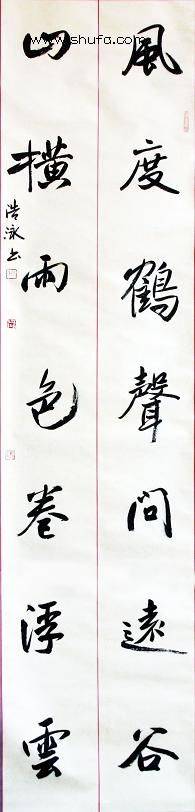 www.shufa.com
風度鶴聲問遠谷
山橫雨色卷浮雲
浩泳书